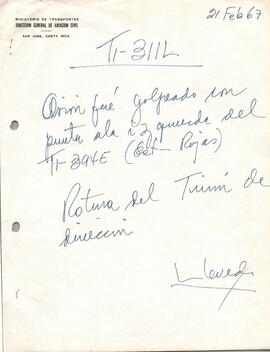 21 Feb 67
MINISTERIO DE TRANSPORTES
DIRECCION GENERAL DE AVIACION CIVIL
SAN JOSE, COSTA RICA
TI-311L
Avión fué golpeado con
punta ala izquierda del
TI-394E (Rojas)
Rotura del Timón de
dirección